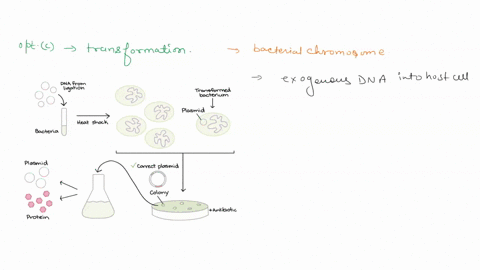 opt.(c) → transformation. → bacterial chromosome
→ exogenous DNA into host cell
DNA from
ligation
Transformed
bacterium
Plasmid
Bacteria
Heat shock
Plasmid
✓ Correct plasmid
Colony
Protein
+Antibiotic